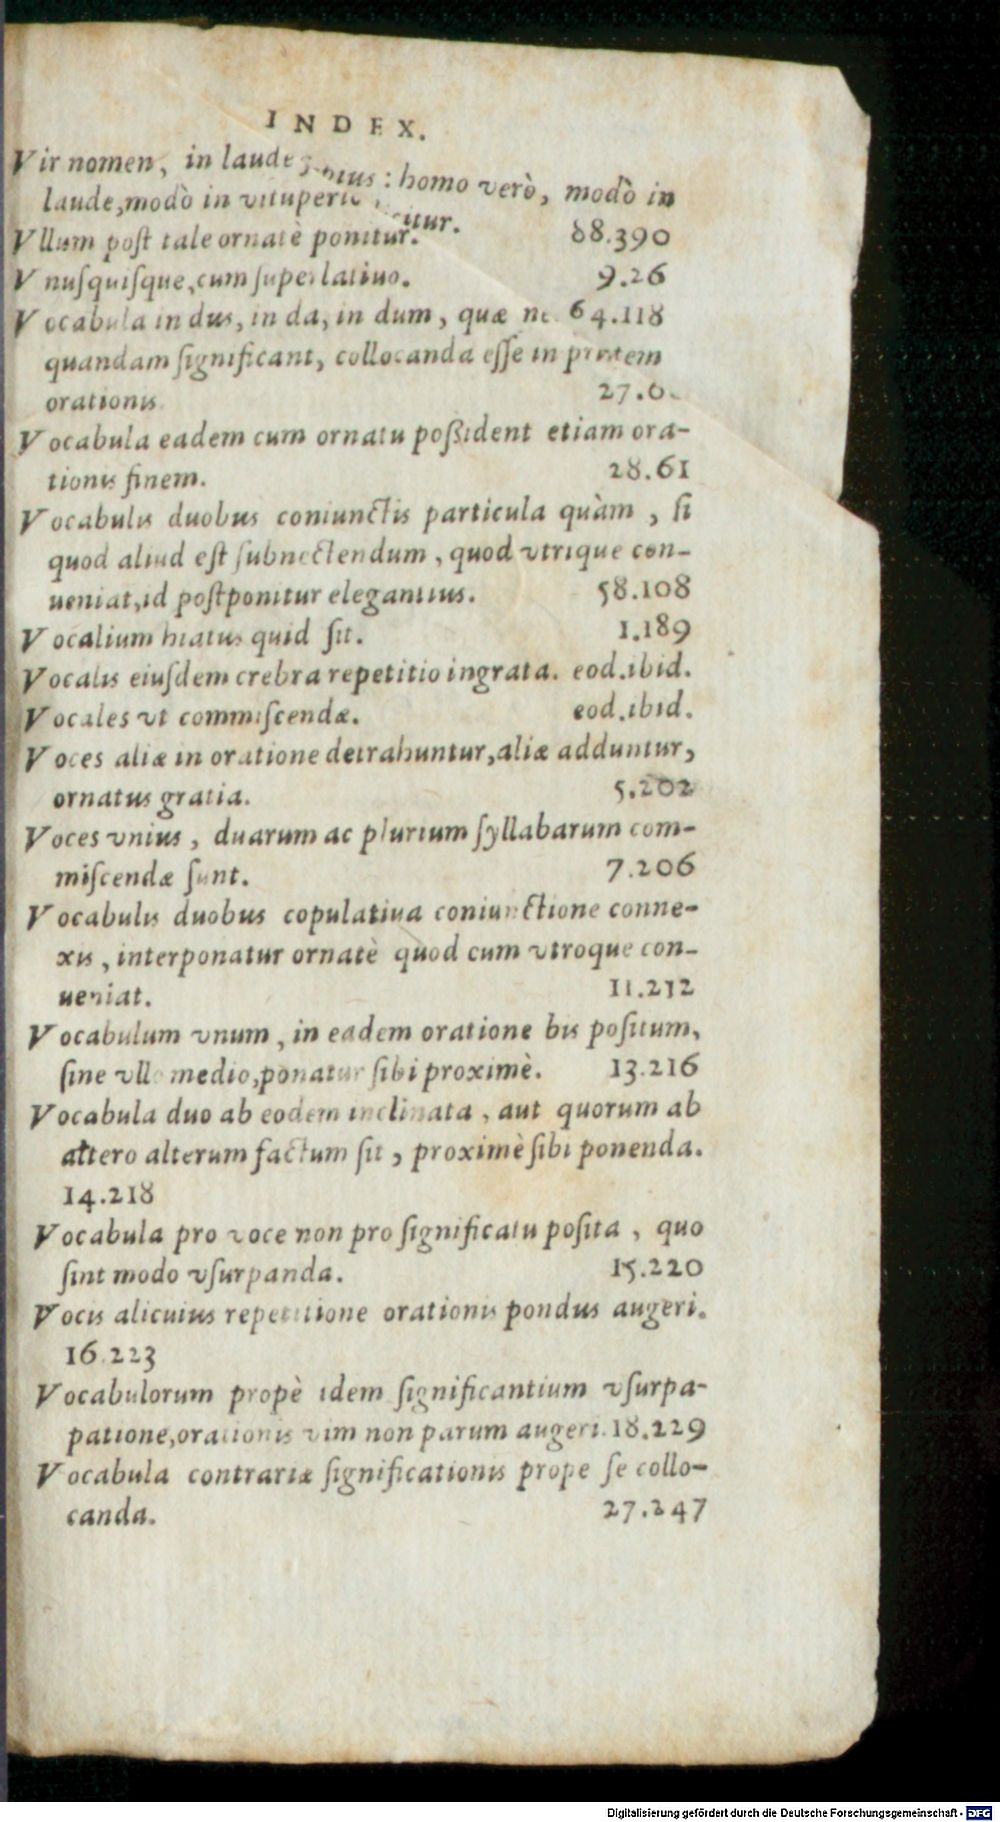 INDEX.
Vir nomen, in laude : homo verò, modò in
laude, modò in vituperi
Vllum post tale ornatè ponitur. 88.390
Vnusquisque, cum superlatiuo. 9.26
Vocabula in dus, in da, in dum, quæ 64.118
quandam significant, collocanda esse in
orationis 27.
Vocabula eadem cum ornatu poßident etiam ora-
tionis finem. 28.61
Vocabulis duobus coniunctis particula quàm, si
quod aliud est subnectendum, quod vtrique con-
ueniat, id postponitur elegantius. 58.108
Vocalium hiatus quid sit. 1.189
Vocalis eiusdem crebra repetitio ingrata. eod. ibid.
Vocales vt commiscendæ. eod. ibid.
Voces aliæ in oratione detrahuntur, aliæ adduntur,
ornatus gratia. 5.202
Voces vnius, duarum ac plurium syllabarum com-
miscendæ sunt. 7.206
Vocabulis duobus copulatiua coniunctione conne-
xis, interponatur ornatè quod cum vtroque con-
ueniat. 11.212
Vocabulum vnum, in eadem oratione bis positum,
sine vllo medio, ponatur sibi proximè. 13.216
Vocabula duo ab eodem inclinata, aut quorum ab
altero alterum factum sit, proximè sibi ponenda.
14.218
Vocabula pro voce non pro significatu posita, quo
sint modo vsurpanda. 15.220
Vocis alicuius repetitione orationis pondus augeri.
16.223
Vocabulorum propè idem significantium vsurpa-
patione, orationis vim non parum augeri. 18.229
Vocabula contrariæ significationis prope se collo-
canda. 27.247
Digitalisierung gefördert durch die Deutsche Forschungsgemeinschaft - DFG